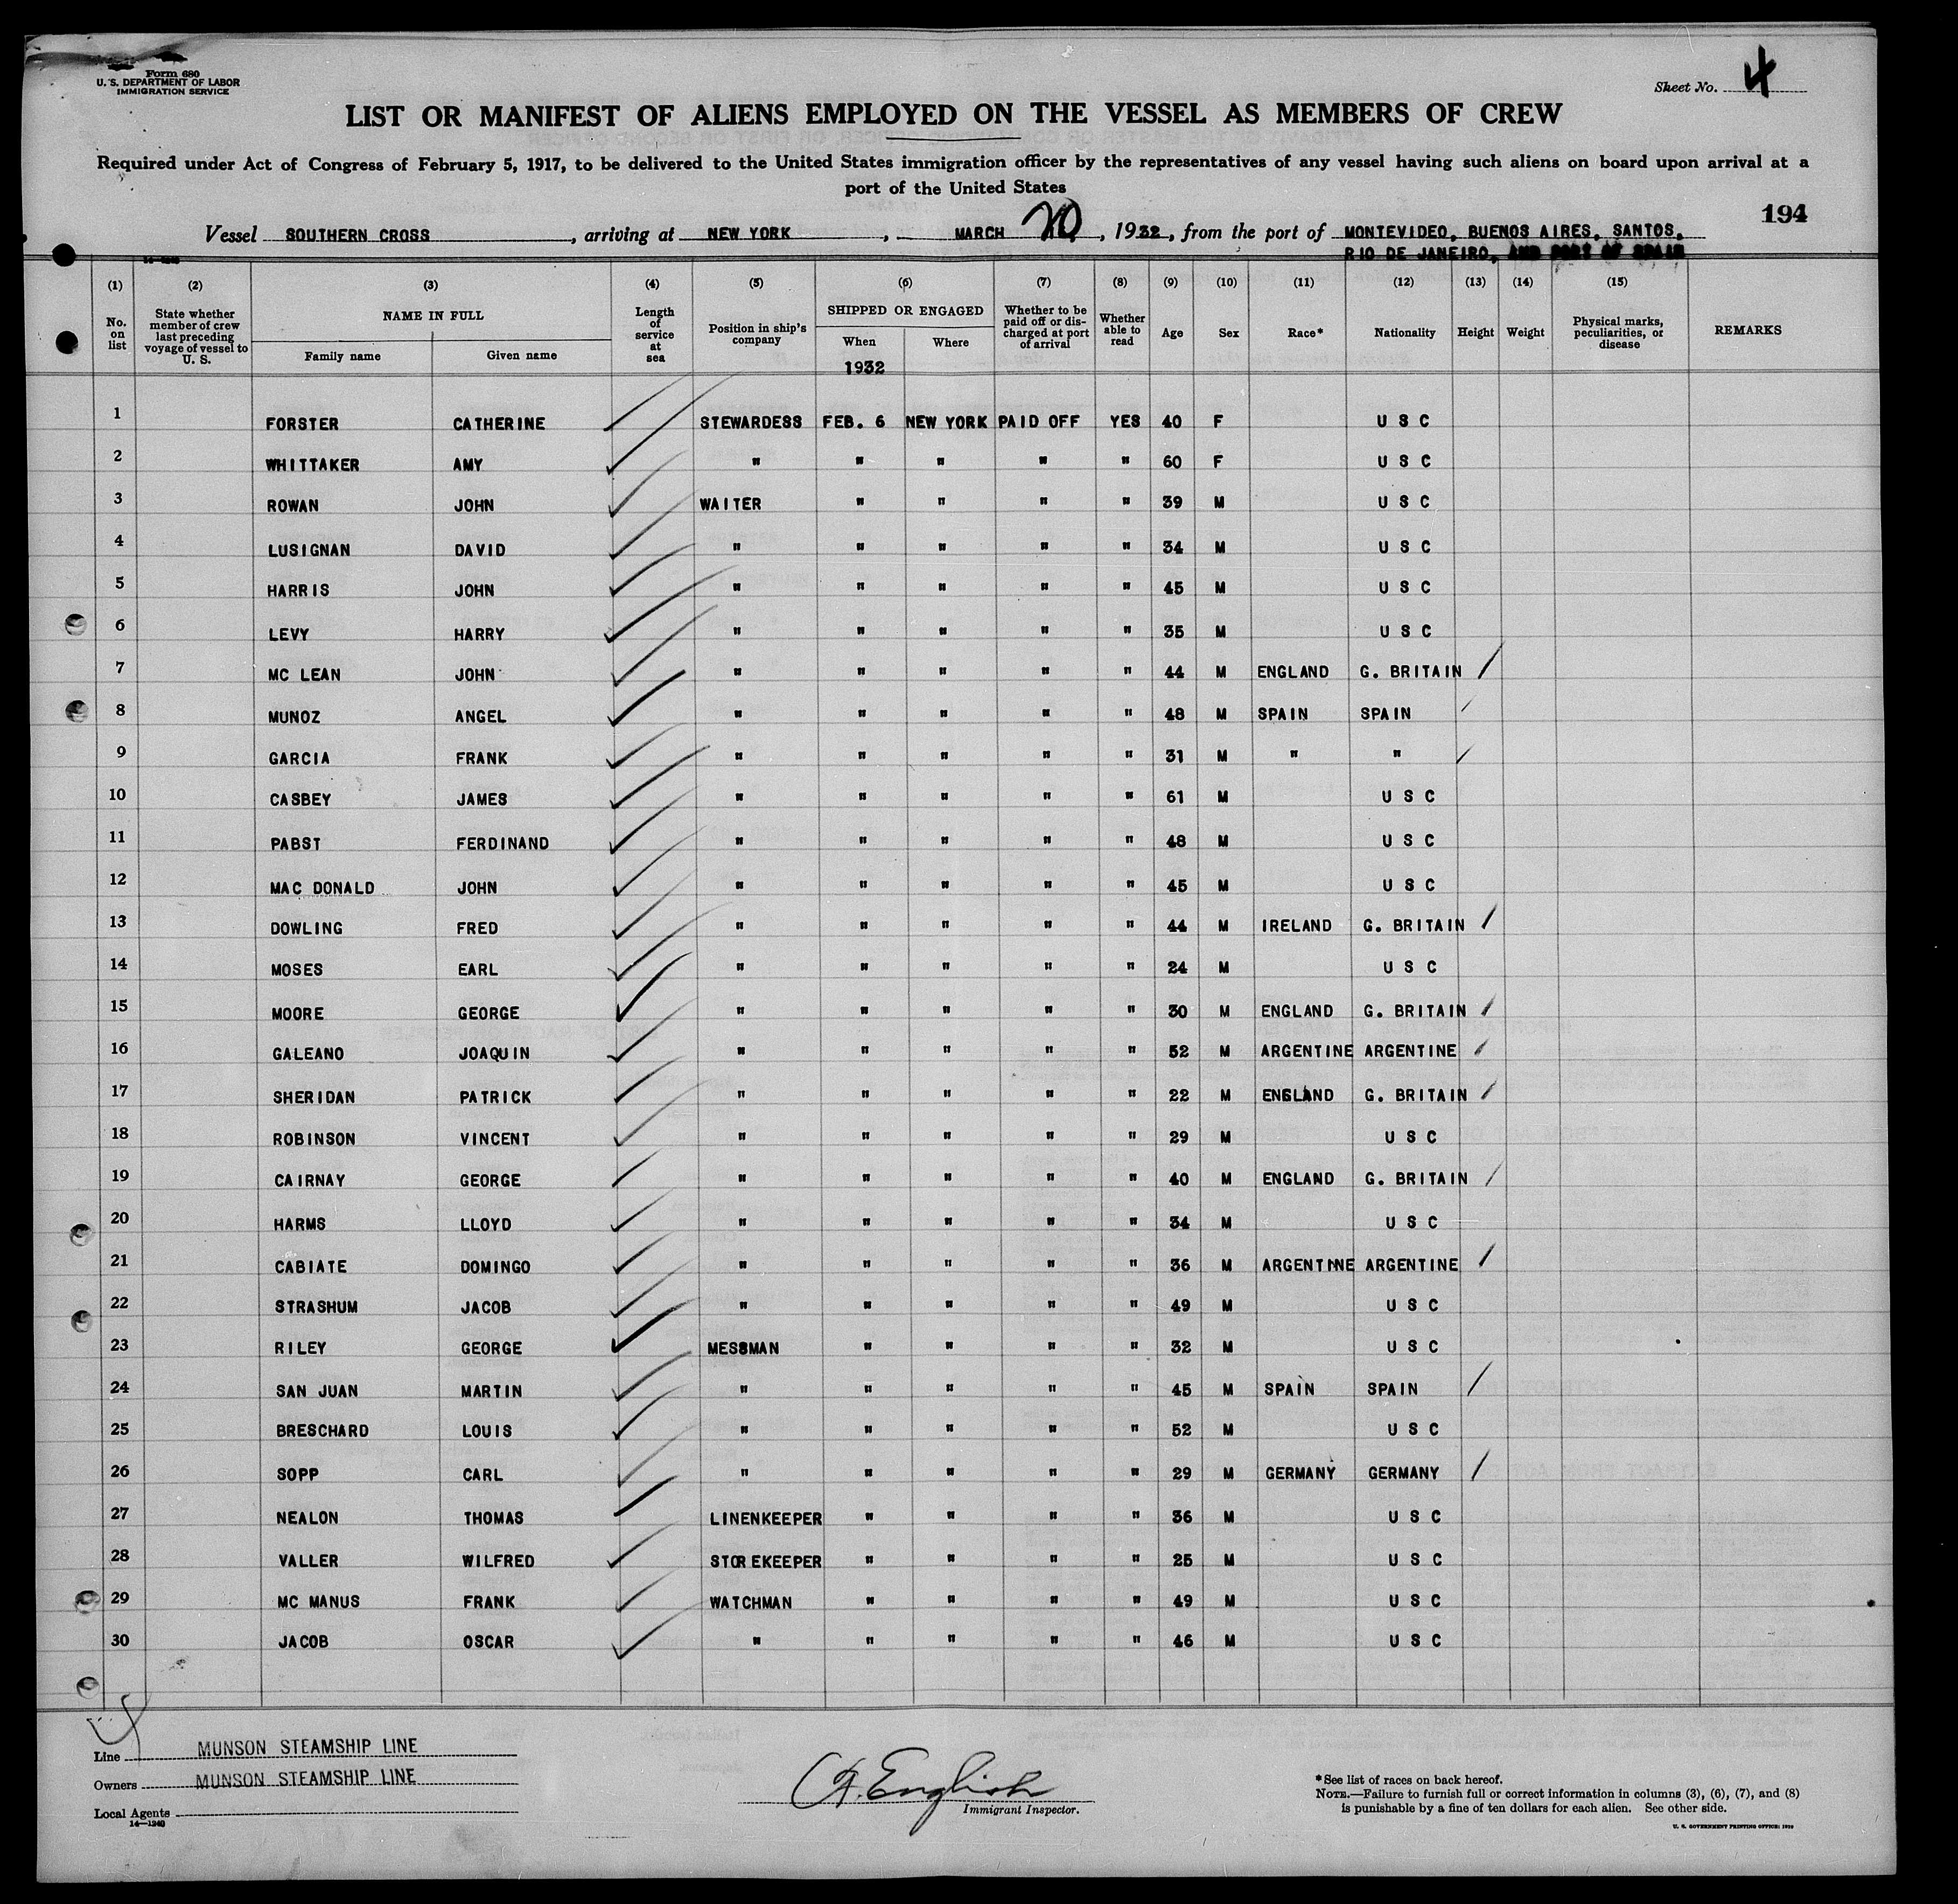 Form 680
U. S. DEPARTMENT OF LABOR
IMMIGRATION SERVICE
Sheet No. 4
LIST OR MANIFEST OF ALIENS EMPLOYED ON THE VESSEL AS MEMBERS OF CREW
Required under Act of Congress of February 5, 1917, to be delivered to the United States immigration officer by the representatives of any vessel having such aliens on board upon arrival at a
port of the United States
194
Vessel SOUTHERN CROSS, arriving at NEW YORK, MARCH 20, 1932, from the port of MONTEVIDEO, BUENOS AIRES, SANTOS,
RIO DE JANEIRO, AND PORT OF SPAIN
(1) (2) (3) (4) (5) (6) (7) (8) (9) (10) (11) (12) (13) (14) (15)
No. on list
State whether member of crew last preceding voyage of vessel to U. S.
NAME IN FULL
Family name
Given name
Length of service at sea
Position in ship's company
SHIPPED OR ENGAGED
When
Where
1932
Whether to be paid off or discharged at port of arrival
Whether able to read
Age
Sex
Race*
Nationality
Height
Weight
Physical marks, peculiarities, or disease
REMARKS
1 FORSTER CATHERINE STEWARDESS FEB. 6 NEW YORK PAID OFF YES 40 F U S C
2 WHITTAKER AMY " " " " " 60 F U S C
3 ROWAN JOHN WAITER " " " " 39 M U S C
4 LUSIGNAN DAVID " " " " " 34 M U S C
5 HARRIS JOHN " " " " " 45 M U S C
6 LEVY HARRY " " " " " 35 M U S C
7 MC LEAN JOHN " " " " " 44 M ENGLAND G. BRITAIN
8 MUNOZ ANGEL " " " " " 48 M SPAIN SPAIN
9 GARCIA FRANK " " " " " 31 M " "
10 CASBEY JAMES " " " " " 61 M U S C
11 PABST FERDINAND " " " " " 48 M U S C
12 MAC DONALD JOHN " " " " " 45 M U S C
13 DOWLING FRED " " " " " 44 M IRELAND G. BRITAIN
14 MOSES EARL " " " " " 24 M U S C
15 MOORE GEORGE " " " " " 30 M ENGLAND G. BRITAIN
16 GALEANO JOAQUIN " " " " " 52 M ARGENTINE ARGENTINE
17 SHERIDAN PATRICK " " " " " 22 M ENGLAND G. BRITAIN
18 ROBINSON VINCENT " " " " " 29 M U S C
19 CAIRNAY GEORGE " " " " " 40 M ENGLAND G. BRITAIN
20 HARMS LLOYD " " " " " 34 M U S C
21 CABIATE DOMINGO " " " " " 36 M ARGENTINE ARGENTINE
22 STRASHUM JACOB " " " " " 49 M U S C
23 RILEY GEORGE MESSMAN " " " " 32 M U S C
24 SAN JUAN MARTIN " " " " " 45 M SPAIN SPAIN
25 BRESCHARD LOUIS " " " " " 52 M U S C
26 SOPP CARL " " " " " 29 M GERMANY GERMANY
27 NEALON THOMAS LINENKEEPER " " " " 36 M U S C
28 VALLER WILFRED STOREKEEPER " " " " 25 M U S C
29 MC MANUS FRANK WATCHMAN " " " " 49 M U S C
30 JACOB OSCAR " " " " " 46 M U S C
Line MUNSON STEAMSHIP LINE
Owners MUNSON STEAMSHIP LINE
Local Agents
14—1240
English
Immigrant Inspector.
*See list of races on back hereof.
NOTE.—Failure to furnish full or correct information in columns (3), (6), (7), and (8)
is punishable by a fine of ten dollars for each alien. See other side.
U. S. GOVERNMENT PRINTING OFFICE: 1929